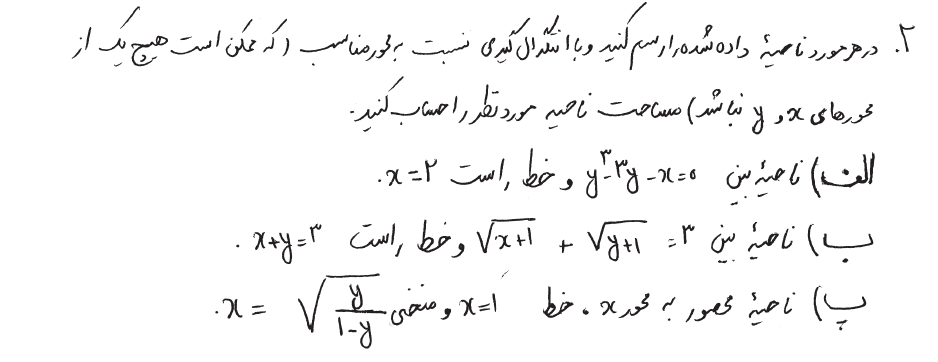 ۲. در هر مورد ناحیهٔ داده شده را رسم کنید و با انتگرال گیری نسبت به محور مناسب (که ممکن است هیچ یک از
محورهای x و y نباشد) مساحت ناحیه مورد نظر را حساب کنید.
الف) ناحیهٔ بین y³-۳y-x=۰ و خط راست x=۲.
ب) ناحیهٔ بین √(x+1) + √(y+1) = ۳ و خط راست x+y=۳.
پ) ناحیهٔ محصور به محور x، خط x=1 و منحنی x = √(y/(1-y)).